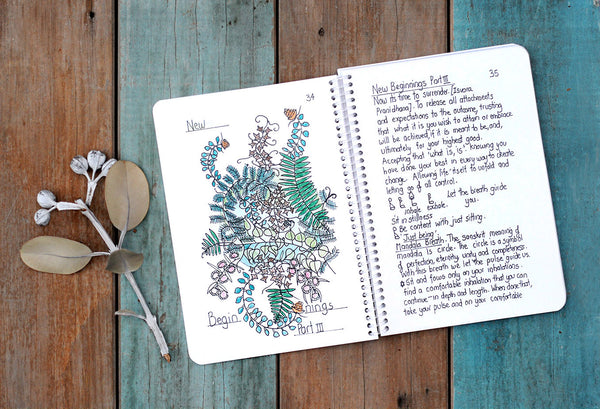 34
New
Beginnings
Part III
35
New Beginnings Part III
Now its time to surrender. [Isvara
Pranidhana]. To release all attachments
and expectations to the outcome, trusting
that what it is you wish to attain or embrace
will be achieved, if it is meant to be, and,
ultimately for your highest good.
Accepting that 'what is, is' knowing you
have done your best in every way to create
change. Allowing life itself to unfold and
letting go of all control.
Let the breath guide
inhale exhale. you.
Sit in stillness
Be content with just sitting.
'Just being'.
Mandala Breath. The sanskrit meaning of
mandala is circle. The circle is a symbol
of perfection, eternity, unity and completeness.
With this breath we let the pulse guide us.
Sit and focus only on your inhalations
find a comfortable inhalation that you can
continue - in depth and length. When done that,
take your pulse and on your comfortable